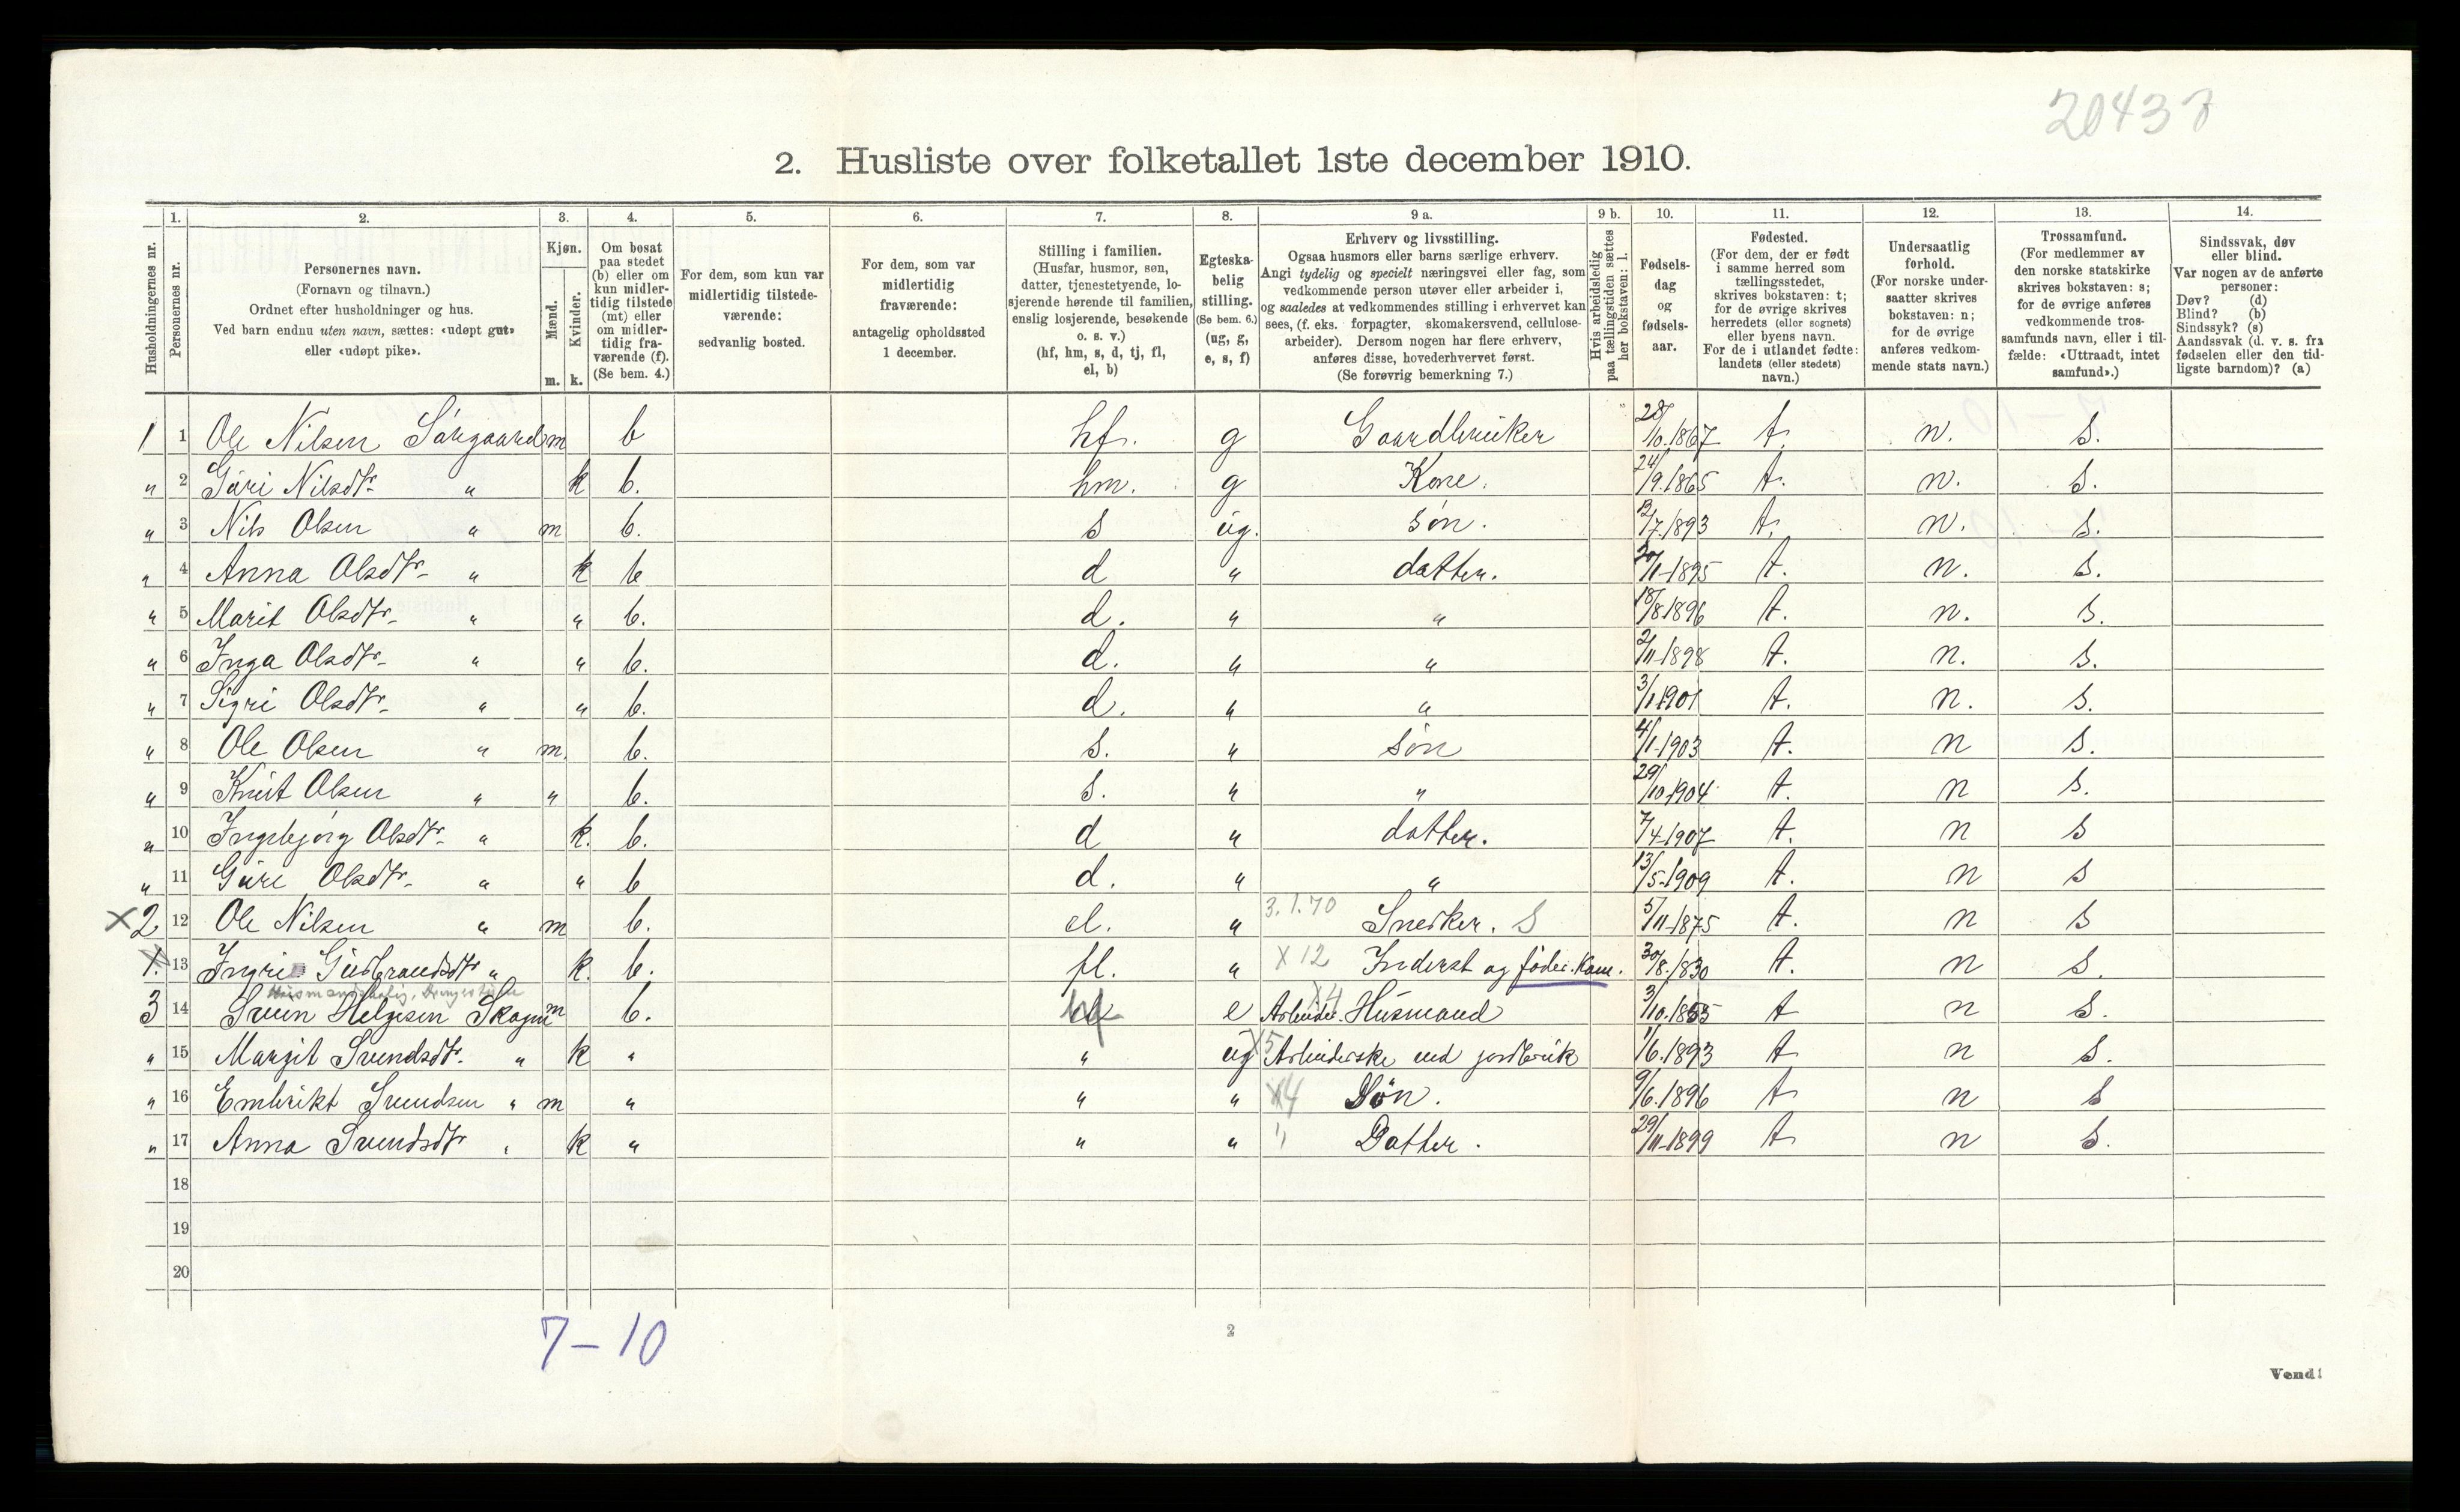 20438
2. Husliste over folketallet 1ste december 1910.
1. 2. 3. 4. 5. 6. 7. 8. 9 a. 9 b. 10. 11. 12. 13. 14.
Husholdningernes nr.
Personernes nr.
Personernes navn.
(Fornavn og tilnavn.)
Ordnet efter husholdninger og hus.
Ved barn endnu uten navn, sættes: «udøpt gut»
eller «udøpt pike».
Kjøn.
Mænd.
Kvinder.
m. k.
Om bosat
paa stedet
(b) eller om
kun midler-
tidig tilstede
(mt) eller
om midler-
tidig fra-
værende (f).
(Se bem. 4.)
For dem, som kun var
midlertidig tilstede-
værende:
sedvanlig bosted.
For dem, som var
midlertidig
fraværende:
antagelig opholdssted
1 december.
Stilling i familien.
(Husfar, husmor, søn,
datter, tjenestetyende, lo-
sjerende hørende til familien,
enslig losjerende, besøkende
o. s. v.)
(hf, hm, s, d, tj, fl,
el, b)
Egteska-
belig
stilling.
(Se bem. 6.)
(ug, g,
e, s, f)
Erhverv og livsstilling.
Ogsaa husmors eller barns særlige erhverv.
Angi tydelig og specielt næringsvei eller fag, som
vedkommende person utøver eller arbeider i,
og saaledes at vedkommendes stilling i erhvervet kan
sees, (f. eks. forpagter, skomakersvend, cellulose-
arbeider). Dersom nogen har flere erhverv,
anføres disse, hovederhvervet først.
(Se forøvrig bemerkning 7.)
Hvis arbeidsledig
paa tællingstiden sættes
her bokstaven: l.
Fødsels-
dag
og
fødsels-
aar.
Fødested.
(For dem, der er født
i samme herred som
tællingsstedet,
skrives bokstaven: t;
for de øvrige skrives
herredets (eller sognets)
eller byens navn.
For de i utlandet fødte:
landets (eller stedets)
navn.)
Undersaatlig
forhold.
(For norske under-
saatter skrives
bokstaven: n;
for de øvrige
anføres vedkom-
mende stats navn.)
Trossamfund.
(For medlemmer av
den norske statskirke
skrives bokstaven: s;
for de øvrige anføres
vedkommende tros-
samfunds navn, eller i til-
fælde: «Uttraadt, intet
samfund».)
Sindssvak, døv
eller blind.
Var nogen av de anførte
personer:
Døv? (d)
Blind? (b)
Sindssyk? (s)
Aandssvak (d. v. s. fra
fødselen eller den tid-
ligste barndom)? (a)
1 1 Ole Nilsen Sørgaard m b hf. g Gaardbruker 28/10.1867 t. n. s.
" 2 Guri Nilsdtr. " k b. hm. g Kone. 24/9.1865 t. n. s.
" 3 Nils Olsen " m b. s ug. søn. 12/7.1893 t. n. s.
" 4 Anna Olsdtr. " k b d " datter. 20/11-1895 t. n. s.
" 5 Marit Olsdtr. " " b. d. " " 18/8.1896 t. n. s.
" 6 Inga Olsdtr. " " b. d. " " 2/11-1898 t. n. s.
" 7 Sigri Olsdtr. " " b. d. " " 3/1.1901 t. n. s.
" 8 Ole Olsen " m. b. s. " søn 4/1-1903 t. n s.
" 9 Knut Olsen " " b. s. " " 29/10.1904 t. n s.
" 10 Ingebjørg Olsdtr. " k. b. d " datter. 7/4-1907 t. n s
" 11 Guri Olsdtr. " " b d. " " 13/5-1909 t. n s
x 2 12 Ole Nilsen " m b. el. " 3.1.70 Snedker. S 5/11-1875 t. n s
1. 13 Ingri Gudbrandsdtr " k. b. fl. " x 12 Inderst og føder. Kone. 30/8.1830 t. n s.
3 14 Svein Helgesen Skogen m b. e x4 Arbeider. Husmand 3/10.1855 t n s.
" 15 Margit Svendsdtr. " k " " ug x5 Arbeiderske ved jordbruk 1/6.1893 t n s.
" 16 Embrikt Svendsen " m " " " x4 Søn. 9/6.1896 t n s
" 17 Anna Svendsdtr " k " " " " Datter. 29/11-1899 t n s.
18
19
20
7-10
2
Vend!